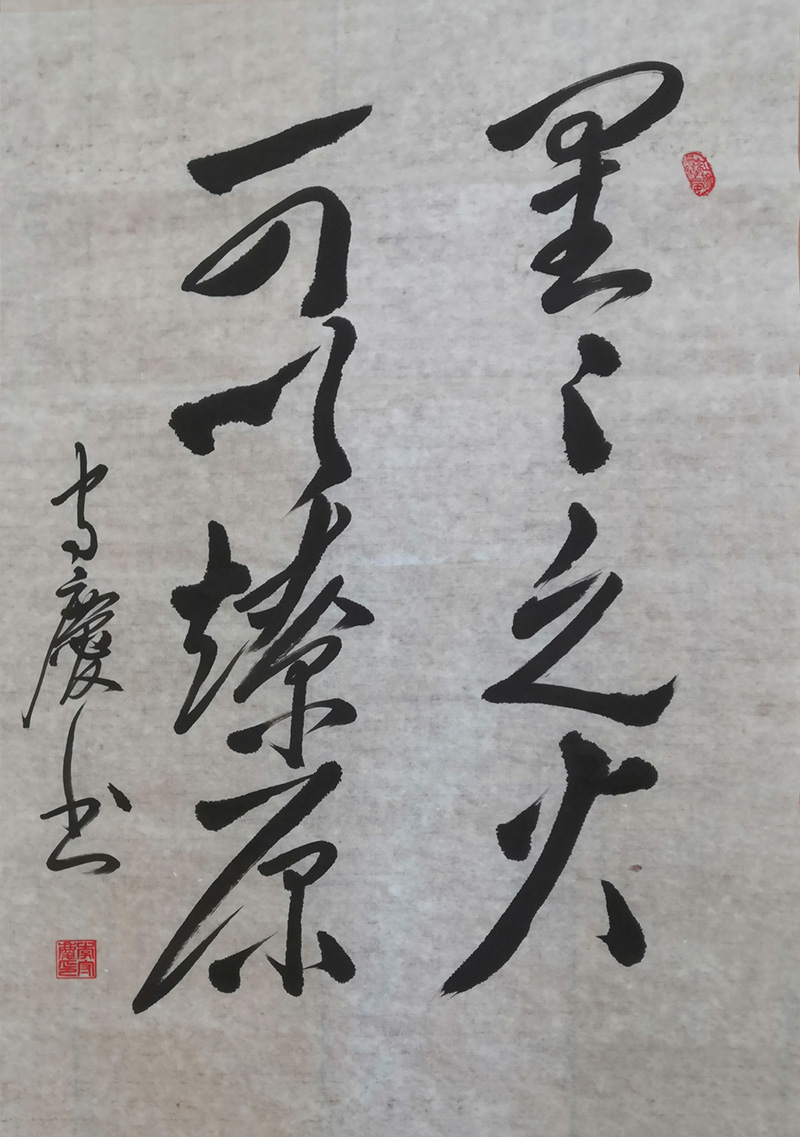 星星之火
可以燎原
守慶书